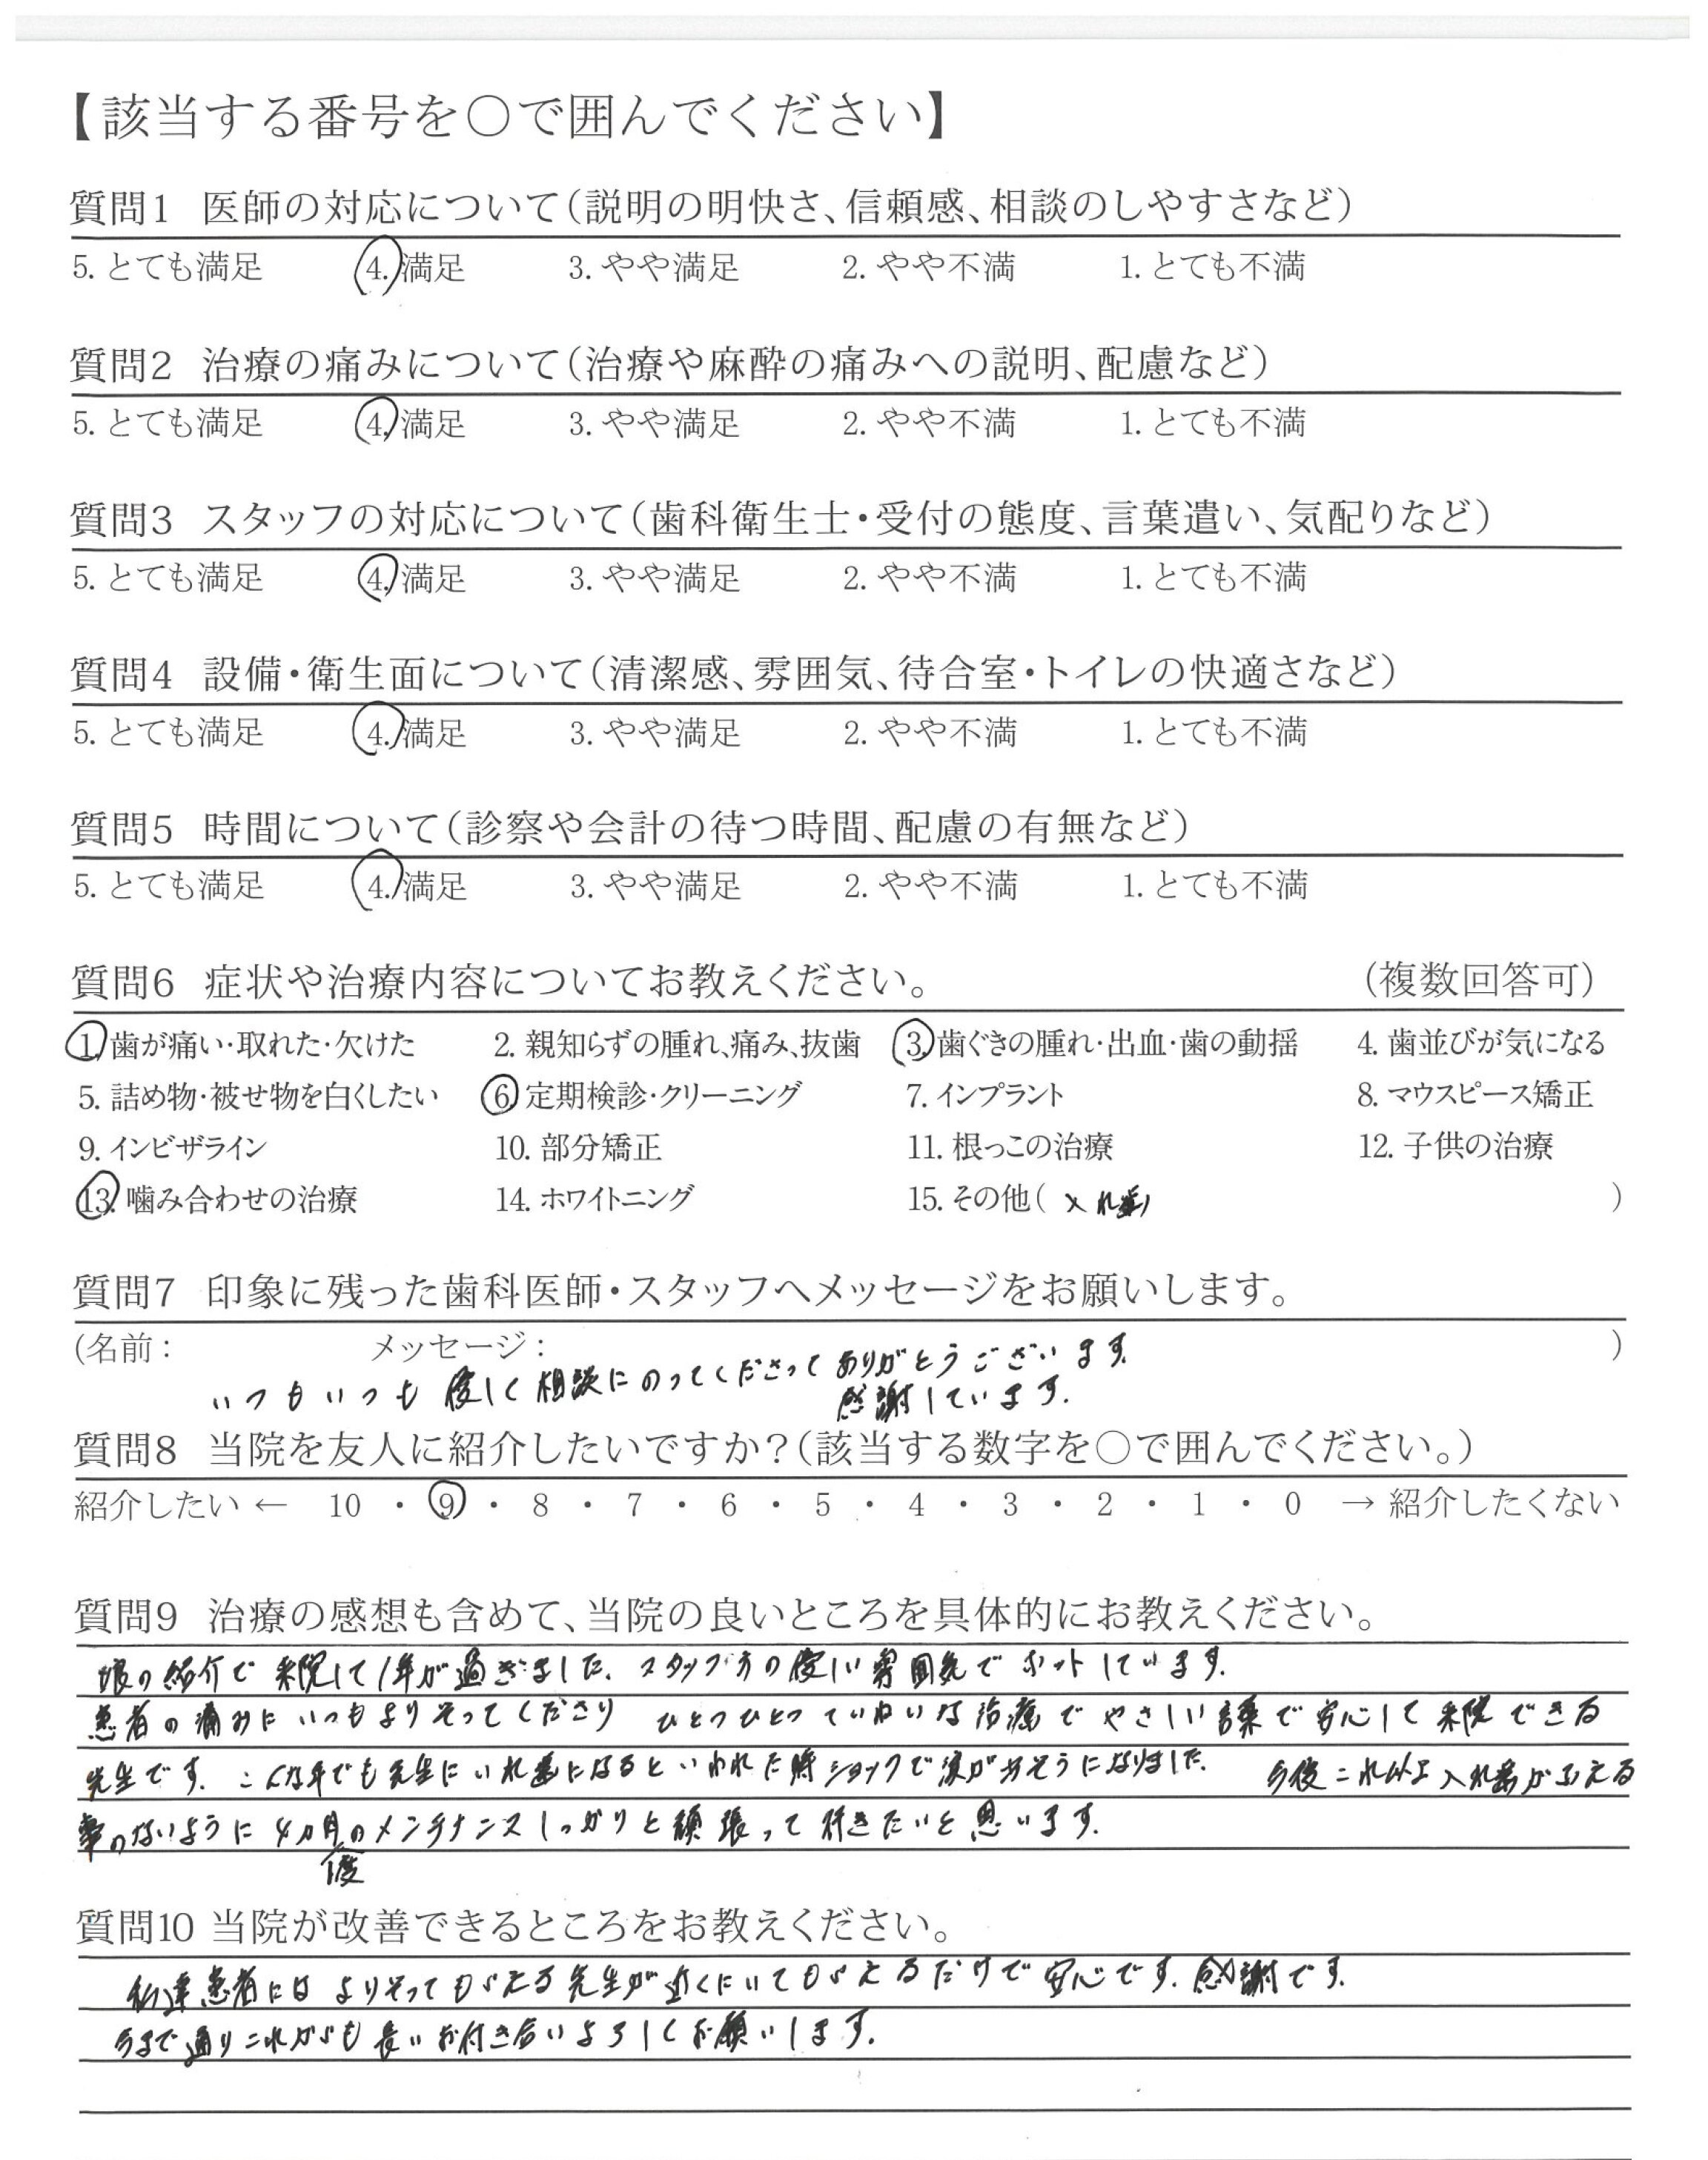 【該当する番号を○で囲んでください】
質問1 医師の対応について（説明の明快さ、信頼感、相談のしやすさなど）
5. とても満足 4. 満足 3. やや満足 2. やや不満 1. とても不満
質問2 治療の痛みについて（治療や麻酔の痛みへの説明、配慮など）
5. とても満足 4. 満足 3. やや満足 2. やや不満 1. とても不満
質問3 スタッフの対応について（歯科衛生士・受付の態度、言葉遣い、気配りなど）
5. とても満足 4. 満足 3. やや満足 2. やや不満 1. とても不満
質問4 設備・衛生面について（清潔感、雰囲気、待合室・トイレの快適さなど）
5. とても満足 4. 満足 3. やや満足 2. やや不満 1. とても不満
質問5 時間について（診察や会計の待つ時間、配慮の有無など）
5. とても満足 4. 満足 3. やや満足 2. やや不満 1. とても不満
質問6 症状や治療内容についてお教えください。 （複数回答可）
1. 歯が痛い・取れた・欠けた 2. 親知らずの腫れ、痛み、抜歯 3. 歯ぐきの腫れ・出血・歯の動揺 4. 歯並びが気になる
5. 詰め物・被せ物を白くしたい 6. 定期検診・クリーニング 7. インプラント 8. マウスピース矯正
9. インビザライン 10. 部分矯正 11. 根っこの治療 12. 子供の治療
13. 噛み合わせの治療 14. ホワイトニング 15. その他（入れ歯）
質問7 印象に残った歯科医師・スタッフへメッセージをお願いします。
（名前： メッセージ： ）
いつもいつも優しく相談にのってくださってありがとうございます。
感謝しています。
質問8 当院を友人に紹介したいですか？（該当する数字を○で囲んでください。）
紹介したい ← 10 ・ 9 ・ 8 ・ 7 ・ 6 ・ 5 ・ 4 ・ 3 ・ 2 ・ 1 ・ 0 → 紹介したくない
質問9 治療の感想も含めて、当院の良いところを具体的にお教えください。
娘の紹介で来院して1年が過ぎました。スタッフ方の優しい雰囲気でホットしています。
患者の痛みにいつもよりそってくださり ひとつひとつていねいな治療でやさしい言葉で安心して来院できる
先生です。こんな年でも先生にいれ歯になるといわれた時ショックで涙が出そうになりました。 今後これ以上入れ歯がふえる
事のないように4カ月のメンテナンスしっかりと頑張って行きたいと思います。
1度
質問10 当院が改善できるところをお教えください。
私達患者にはよりそってもらえる先生が近くにいてもらえるだけで安心です。感謝です。
今まで通りこれからも長いお付き合いよろしくお願いします。